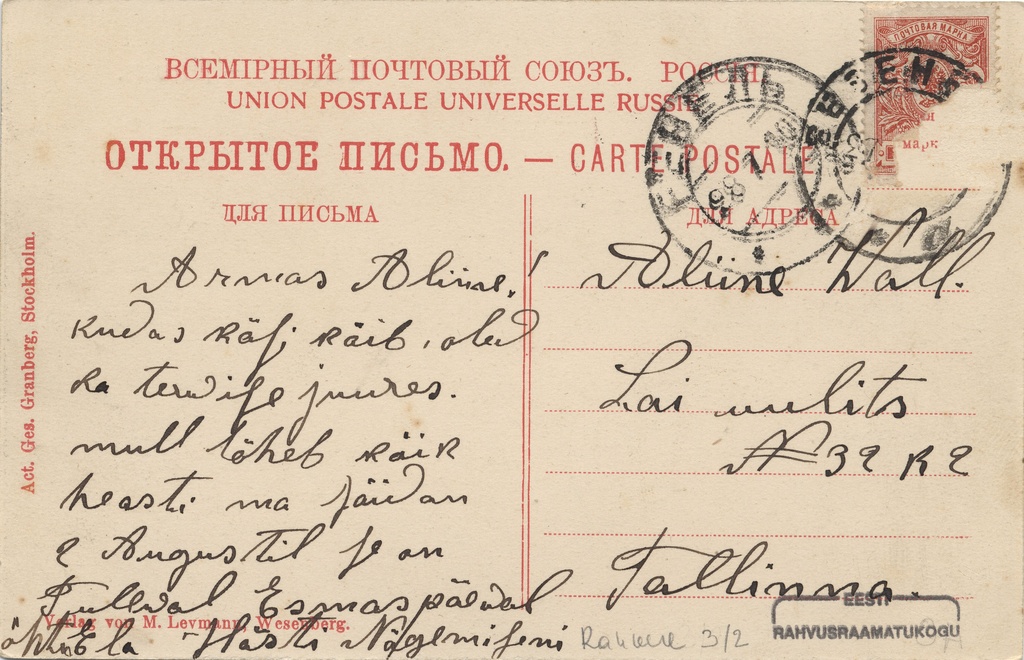 ВСЕМІРНЫЙ ПОЧТОВЫЙ СОЮЗЪ. РОССІЯ
UNION POSTALE UNIVERSELLE RUSSIE
ОТКРЫТОЕ ПИСЬМО. — CARTE POSTALE
ПОЧТОВАЯ МАРКА
марк
РЕВЕЛЬ
ДЛЯ ПИСЬМА
ДЛЯ АДРЕСА
Armas Aliine!
Kudas käsi käib, oled
ka terwise juures.
mull läheb käik
heasti ma säidan
2 Augustil se on
Tullewal Esmaspäewal
õhtu Ela Hästi Nägemiseni
Aliine Wall.
Lai uulits
№ 32 K 2
Tallinna.
Act. Ges. Granberg, Stockholm.
Verlag von M. Levmann, Wesenberg.
Rakvere 3/2
EESTI
RAHVUSRAAMATUKOGU